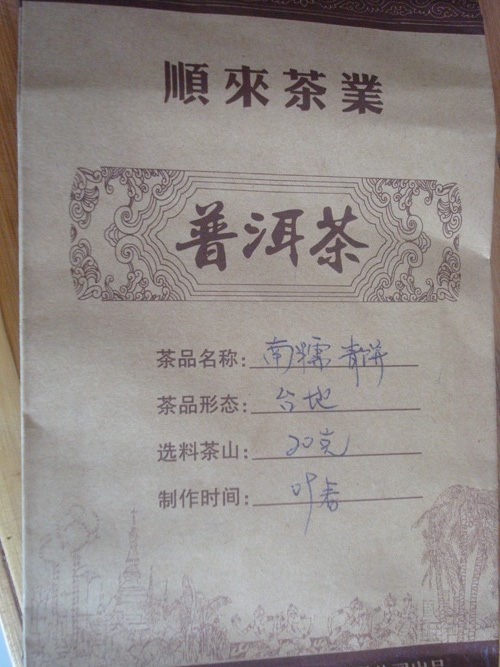 順來茶業
普洱茶
茶品名称：南糯青饼
茶品形态：台地
选料茶山：20克
制作时间：叶春